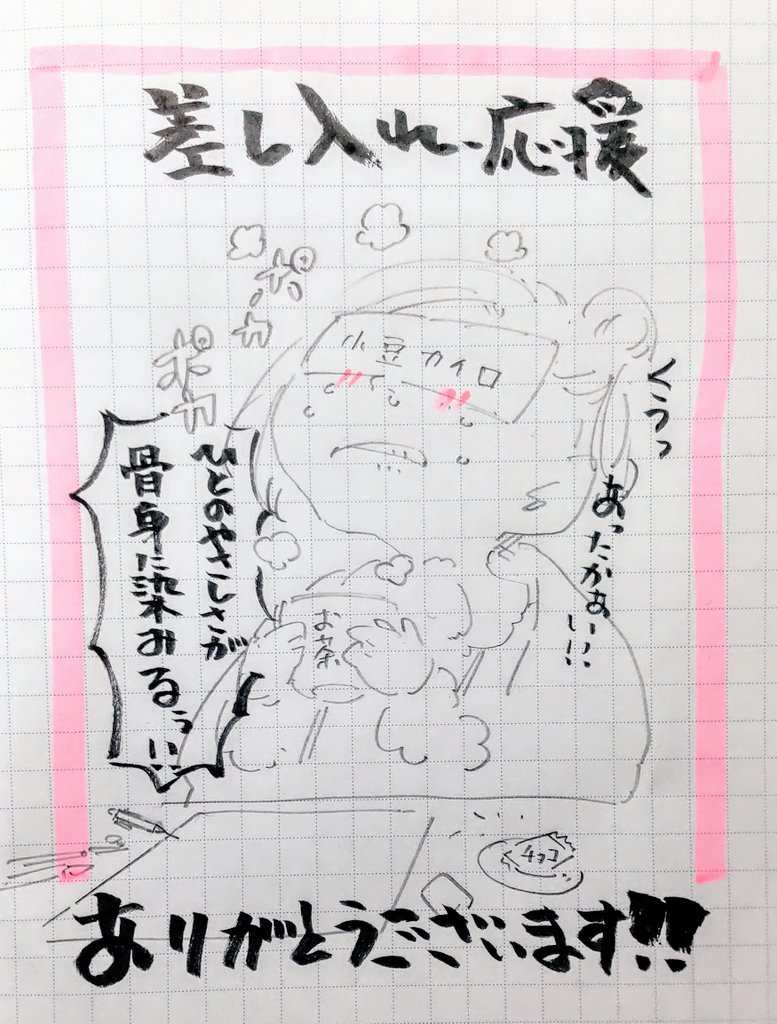 差し入れ・応援
ポカ
ポカ
小豆カイロ
くうっ
あったかぁい!!
ひとのやさしさが
骨身に染みるぅ!!
お茶
チョコ
ありがとうございます!!